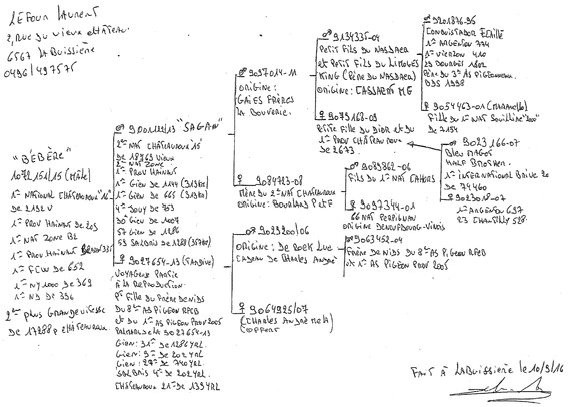 LEFOUR LAURENT
2, RUE DU VIEUX CHÂTEAU
6567 LABUISSIÈRE
0496/497575
"BÉBÈRE"
1072154/15 (MÂLE)
1er NATIONAL CHÂTEAUROUX "15"
DE 2192 V
1er PROV HAINAUT DE 203
1er NAT ZONE B2
1er PROV HAINAUT
1er FCW DE 652
1er DE 369
1er DE 336
2ème PLUS GRANDE VITESSE
DE 17288 P CHÂTEAUROUX
"SAG-PAN"
2ème NAT CHÂTEAUROUX "15"
DE 18763 VIEUX
2ème NAT ZONE
1er PROV HAINAUT
1er GIEN DE 1144 (319KR)
1er GIEN DE 665 (319KR)
4ème DOUY DE 753
30 GIEN DE 1007
57 GIEN DE 1186
53 SALBRIS DE 1288
♀ 9027654-13 (TARDIVE)
VOYAGEUR PASSÉE
À LA REPRODUCTION
Pte FILLE DU FRÈRE DE NIDS
DU 8ème AS PIGEON RFCB
ET DU 1er AS PIGEON PROV 2005
PALMARÈS DE LA 9027654-13
GIEN: 31er DE 1286 YRL
GIEN: 9ème DE 202 YRL
GIEN: 27ème DE 740 YRL
SALBRIS 4ème DE 202 YRL
CHÂTEAUROUX 21er DE 133 YRL
♂ 9097014-11
ORIGINE:
GAIES FRÈRES
LA BOUVERIE.
♀ 9084723-08
MÈRE DU 2ème NAT CHÂTEAUROUX
ORIGINE: BOURLARD P ET F
♂ 9029200/06
ORIGINE: DE ROECK LUC
CADEAU DE CHARLES ANDRÉ
♀ 9064925/07
(CHARLES ANDRÉ
COPPENS
♂ 9134335-04
PETIT FILS DU NASDAER
ET PETIT FILS DU LIMOGES
KING (PÈRE DU NASDAER)
ORIGINE: CASSAERT MG
♀ 9079168-09
PETITE FILLE DU DIOR ET DU
1er PROV CHÂTEAUROUX
DE 2673
♂ 9089362-06
FILS DU 1er NAT CAHORS
♀ 9097344-01
66 NAT PERPIGNAN
ORIGINE DENEUFBOURG-VININS
♂ 9063452-04
FRÈRE DE NIDS DU 8ème AS PIGEON RFCB
ET 1er AS PIGEON PROV 2005
♂ 9201876-95
CONQUISTADOR ECAILLE
1er ARGENTON 774
1er VIERZON 410
23 BOURGES 1802
PÈRE DU 3ème AS PIGEON
BDS 1998
♀ 9054463-01 (CARAMELLO)
FILLE DU 1er NAT SOUILLAC "200"
DE 7154
♂ 9023166-07
BLEU MAGOS
HALF BROTHER.
1er INTERNATIONAL BRIVE 20
DE 74460
♀ 9023018-07
1er ARGENTON 697
23 CHANTILLY 528
FAIT À LABUISSIÈRE LE 10/9/16